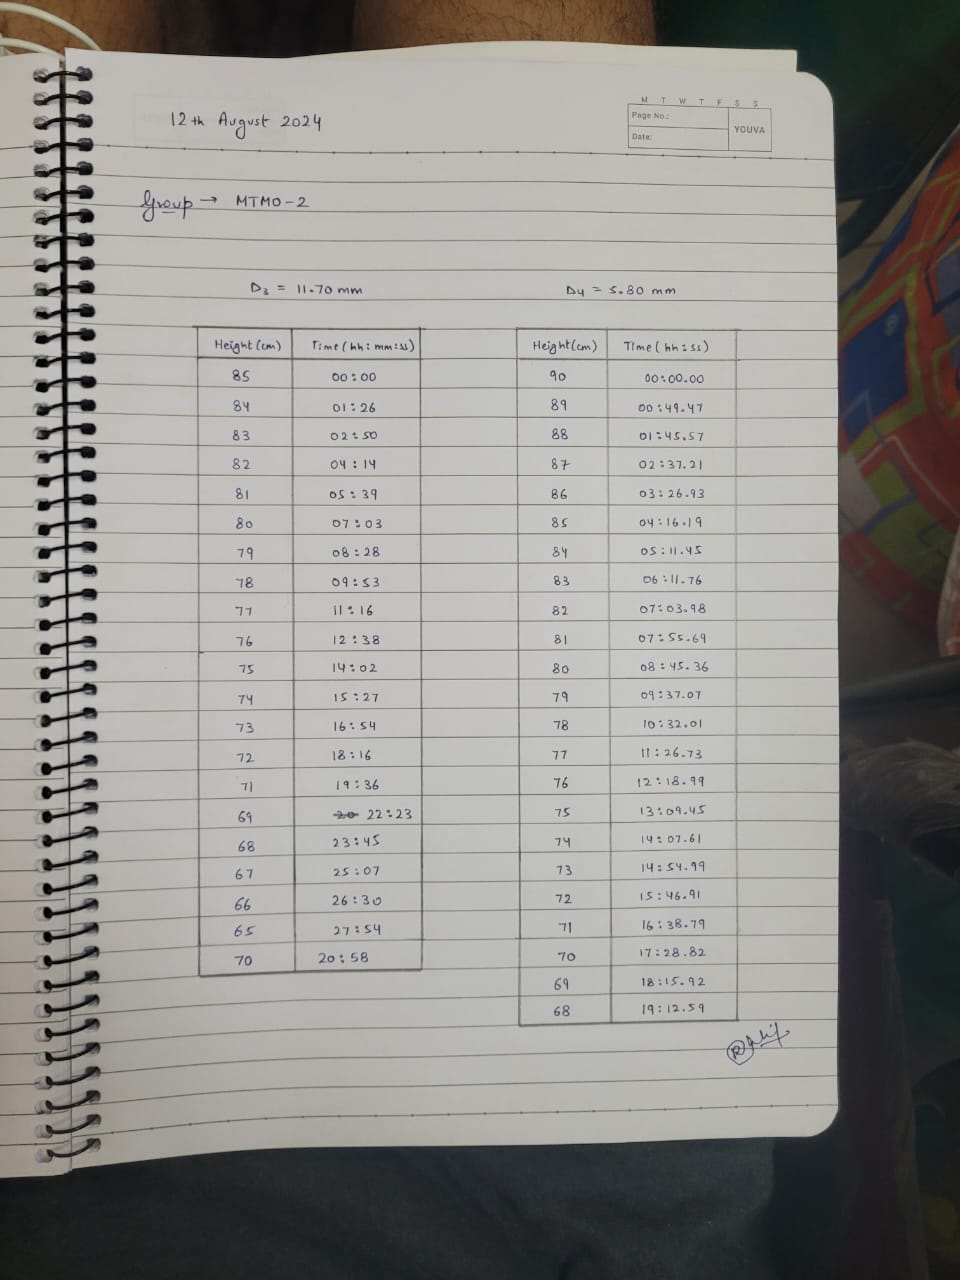 M T W T F S S
Page No.:
Date:
YOUVA
12th August 2024
Group → MTMO-2
D3 = 11.70 mm
Height (cm) Time (hh:mm:ss)
85 00:00
84 01:26
83 02:50
82 04:14
81 05:39
80 07:03
79 08:28
78 09:53
77 11:16
76 12:38
75 14:02
74 15:27
73 16:54
72 18:16
71 19:36
69 20 22:23
68 23:45
67 25:07
66 26:30
65 27:54
70 20:58
D4 = 5.80 mm
Height (cm) Time (hh:ss)
90 00:00.00
89 00:49.47
88 01:45.57
87 02:37.21
86 03:26.93
85 04:16.19
84 05:11.45
83 06:11.76
82 07:03.98
81 07:55.69
80 08:45.36
79 09:37.07
78 10:32.01
77 11:26.73
76 12:18.99
75 13:09.45
74 14:07.61
73 14:54.99
72 15:46.91
71 16:38.79
70 17:28.82
69 18:15.92
68 19:12.59